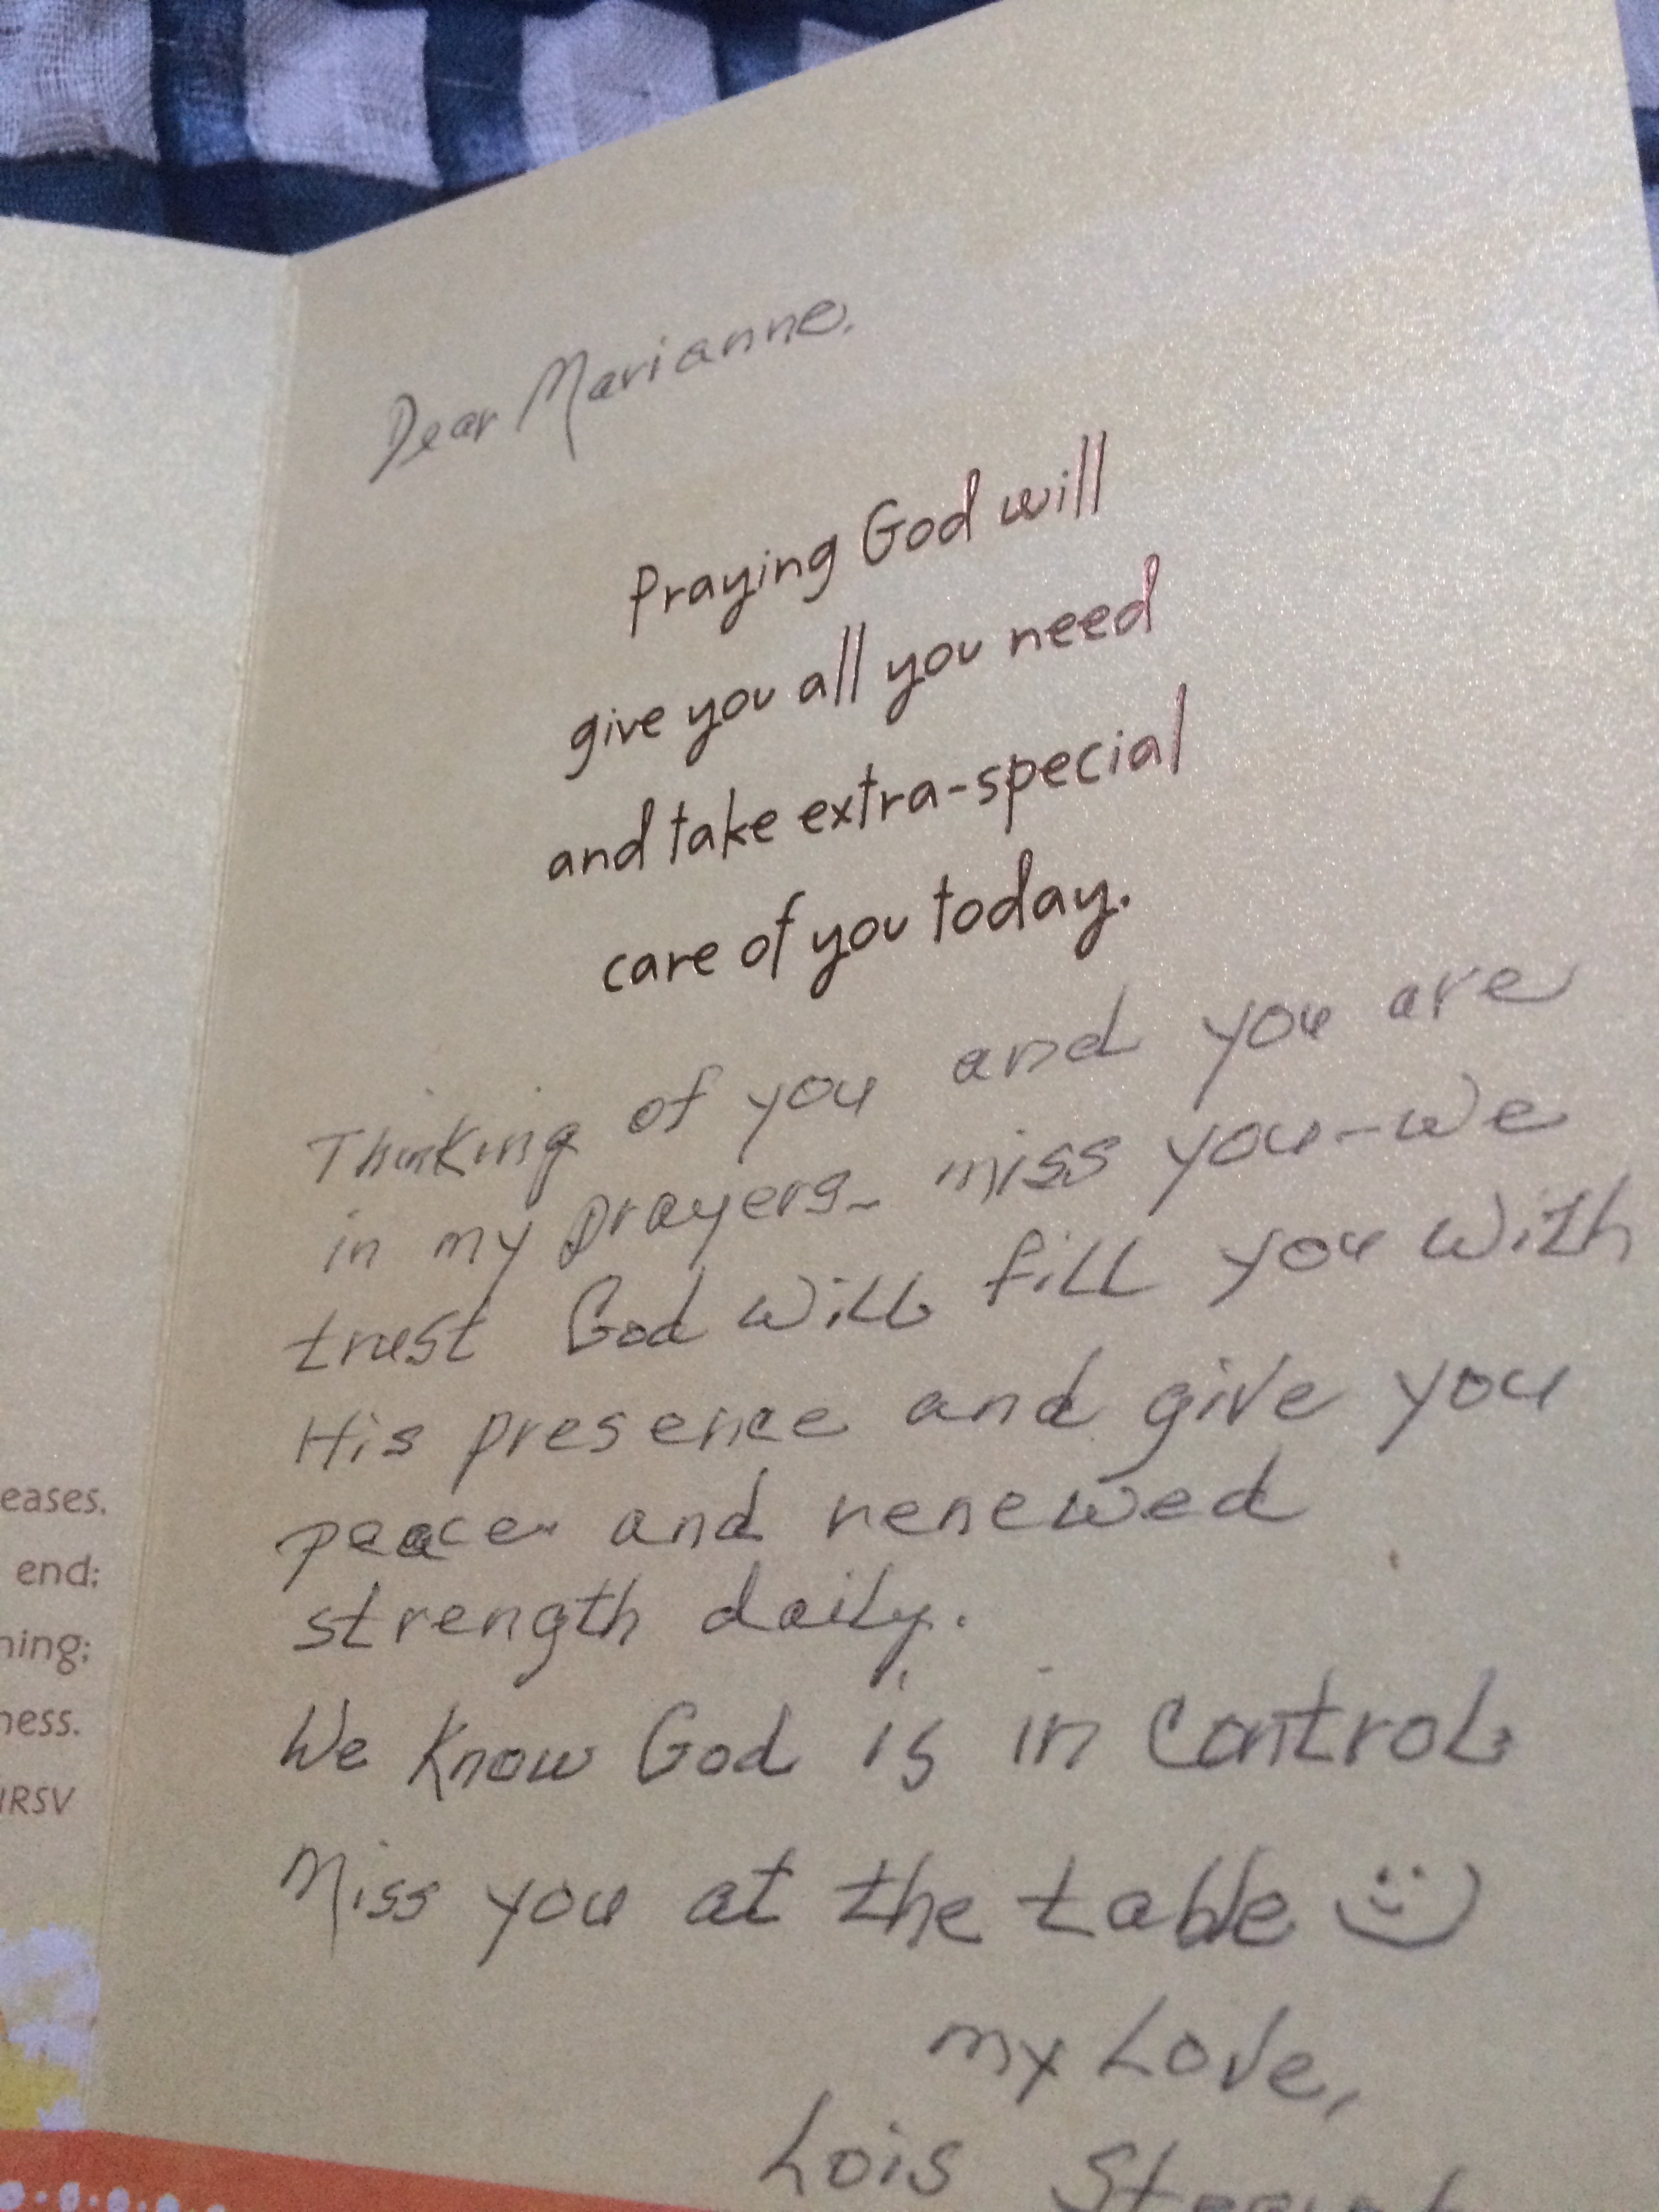 Dear Marianne,
Praying God will
give you all you need
and take extra-special
care of you today.
Thinking of you and you are
in my prayers- miss you-we
trust God will fill you with
His presence and give you
peace and renewed
strength daily.
We know God is in control
Miss you at the table
my Love,
Lois
eases.
end;
ning;
ness.
NRSV